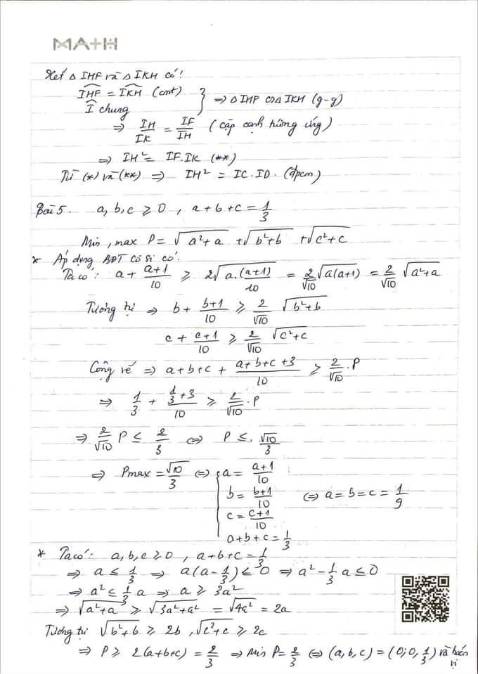 MATH
Xét Δ IHF và Δ IKH có:
∠IHF = ∠IKH (cmt)
∠I chung
} ⇒ Δ IHF ᔕ Δ IKH (g-g)
⇒ IH/IK = IF/IH (cặp cạnh tương ứng)
⇒ IH² = IF.IK (**)
Từ (*) và (**) ⇒ IH² = IC.ID. (đpcm)
Bài 5. a, b, c ≥ 0, a + b + c = 1/3
Min, max P = √(a²+a) + √(b²+b) + √(c²+c)
* Áp dụng BĐT Cô si có:
Ta có: a + (a+1)/10 ≥ 2√(a.(a+1)/10) = 2/√10 √(a(a+1)) = 2/√10 √(a²+a)
Tương tự ⇒ b + (b+1)/10 ≥ 2/√10 √(b²+b)
c + (c+1)/10 ≥ 2/√10 √(c²+c)
Cộng vế ⇒ a+b+c + (a+b+c+3)/10 ≥ 2/√10 . P
⇒ 1/3 + (1/3+3)/10 ≥ 2/√10 . P
⇒ 2/√10 P ≤ 2/3 ⇔ P ≤ √10/3
⇒ Pmax = √10/3 ⇔ { a = (a+1)/10
b = (b+1)/10
c = (c+1)/10
a+b+c = 1/3
⇔ a = b = c = 1/9
* Ta có: a, b, c ≥ 0, a+b+c = 1/3
⇒ a ≤ 1/3 ⇒ a(a - 1/3) ≤ 0 ⇒ a² - 1/3 a ≤ 0
⇒ a² ≤ 1/3 a ⇒ a ≥ 3a²
⇒ √(a²+a) ≥ √(3a²+a²) = √(4a²) = 2a
Tương tự √(b²+b) ≥ 2b, √(c²+c) ≥ 2c
⇒ P ≥ 2(a+b+c) = 2/3 ⇒ Min P = 2/3 ⇔ (a, b, c) = (0; 0; 1/3) và hoán
vị